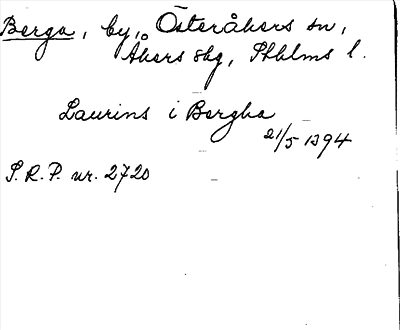 Berga, by, Österåkers sn,
Åkers skg, Sthlms l.
Laurins i Bergha
21/5 1394
S.R.P. nr. 2720